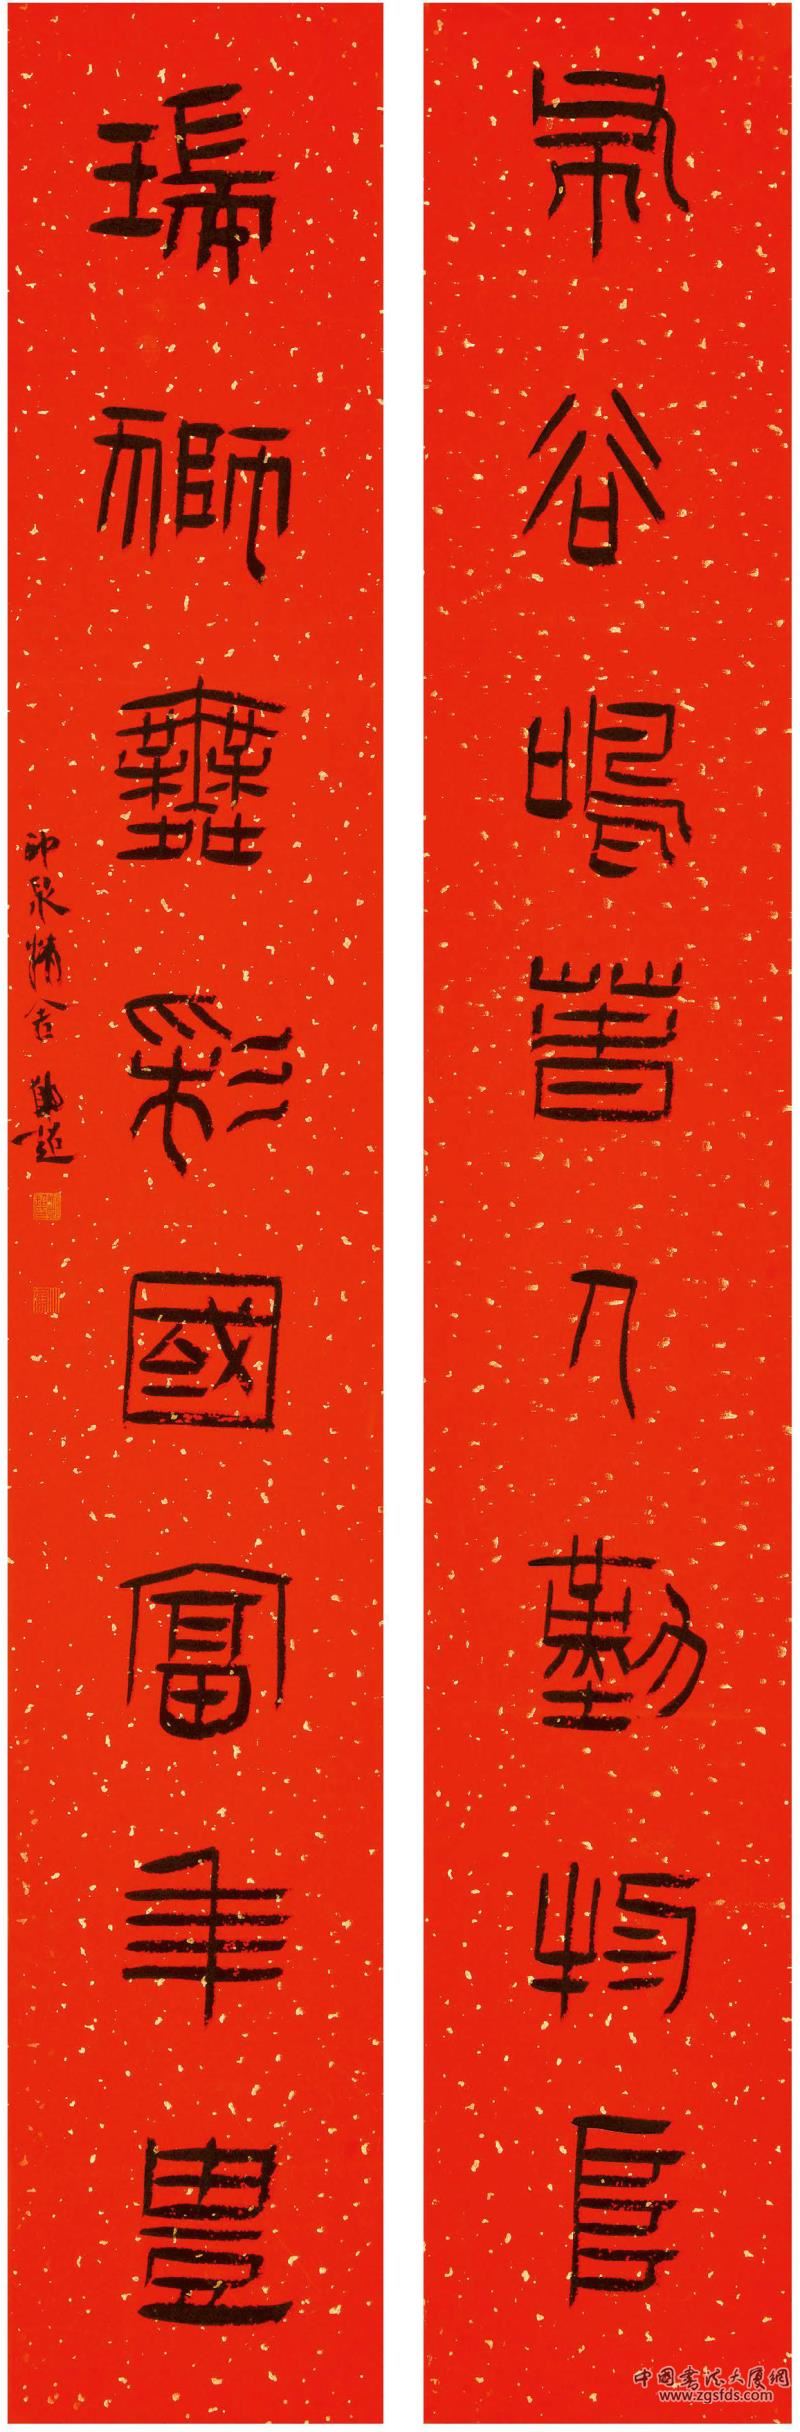 布谷鳴春人勤物阜
瑞獅舞彩國富年豐
印泉精舍 超
中国书法大厦網
www.zgsfds.com